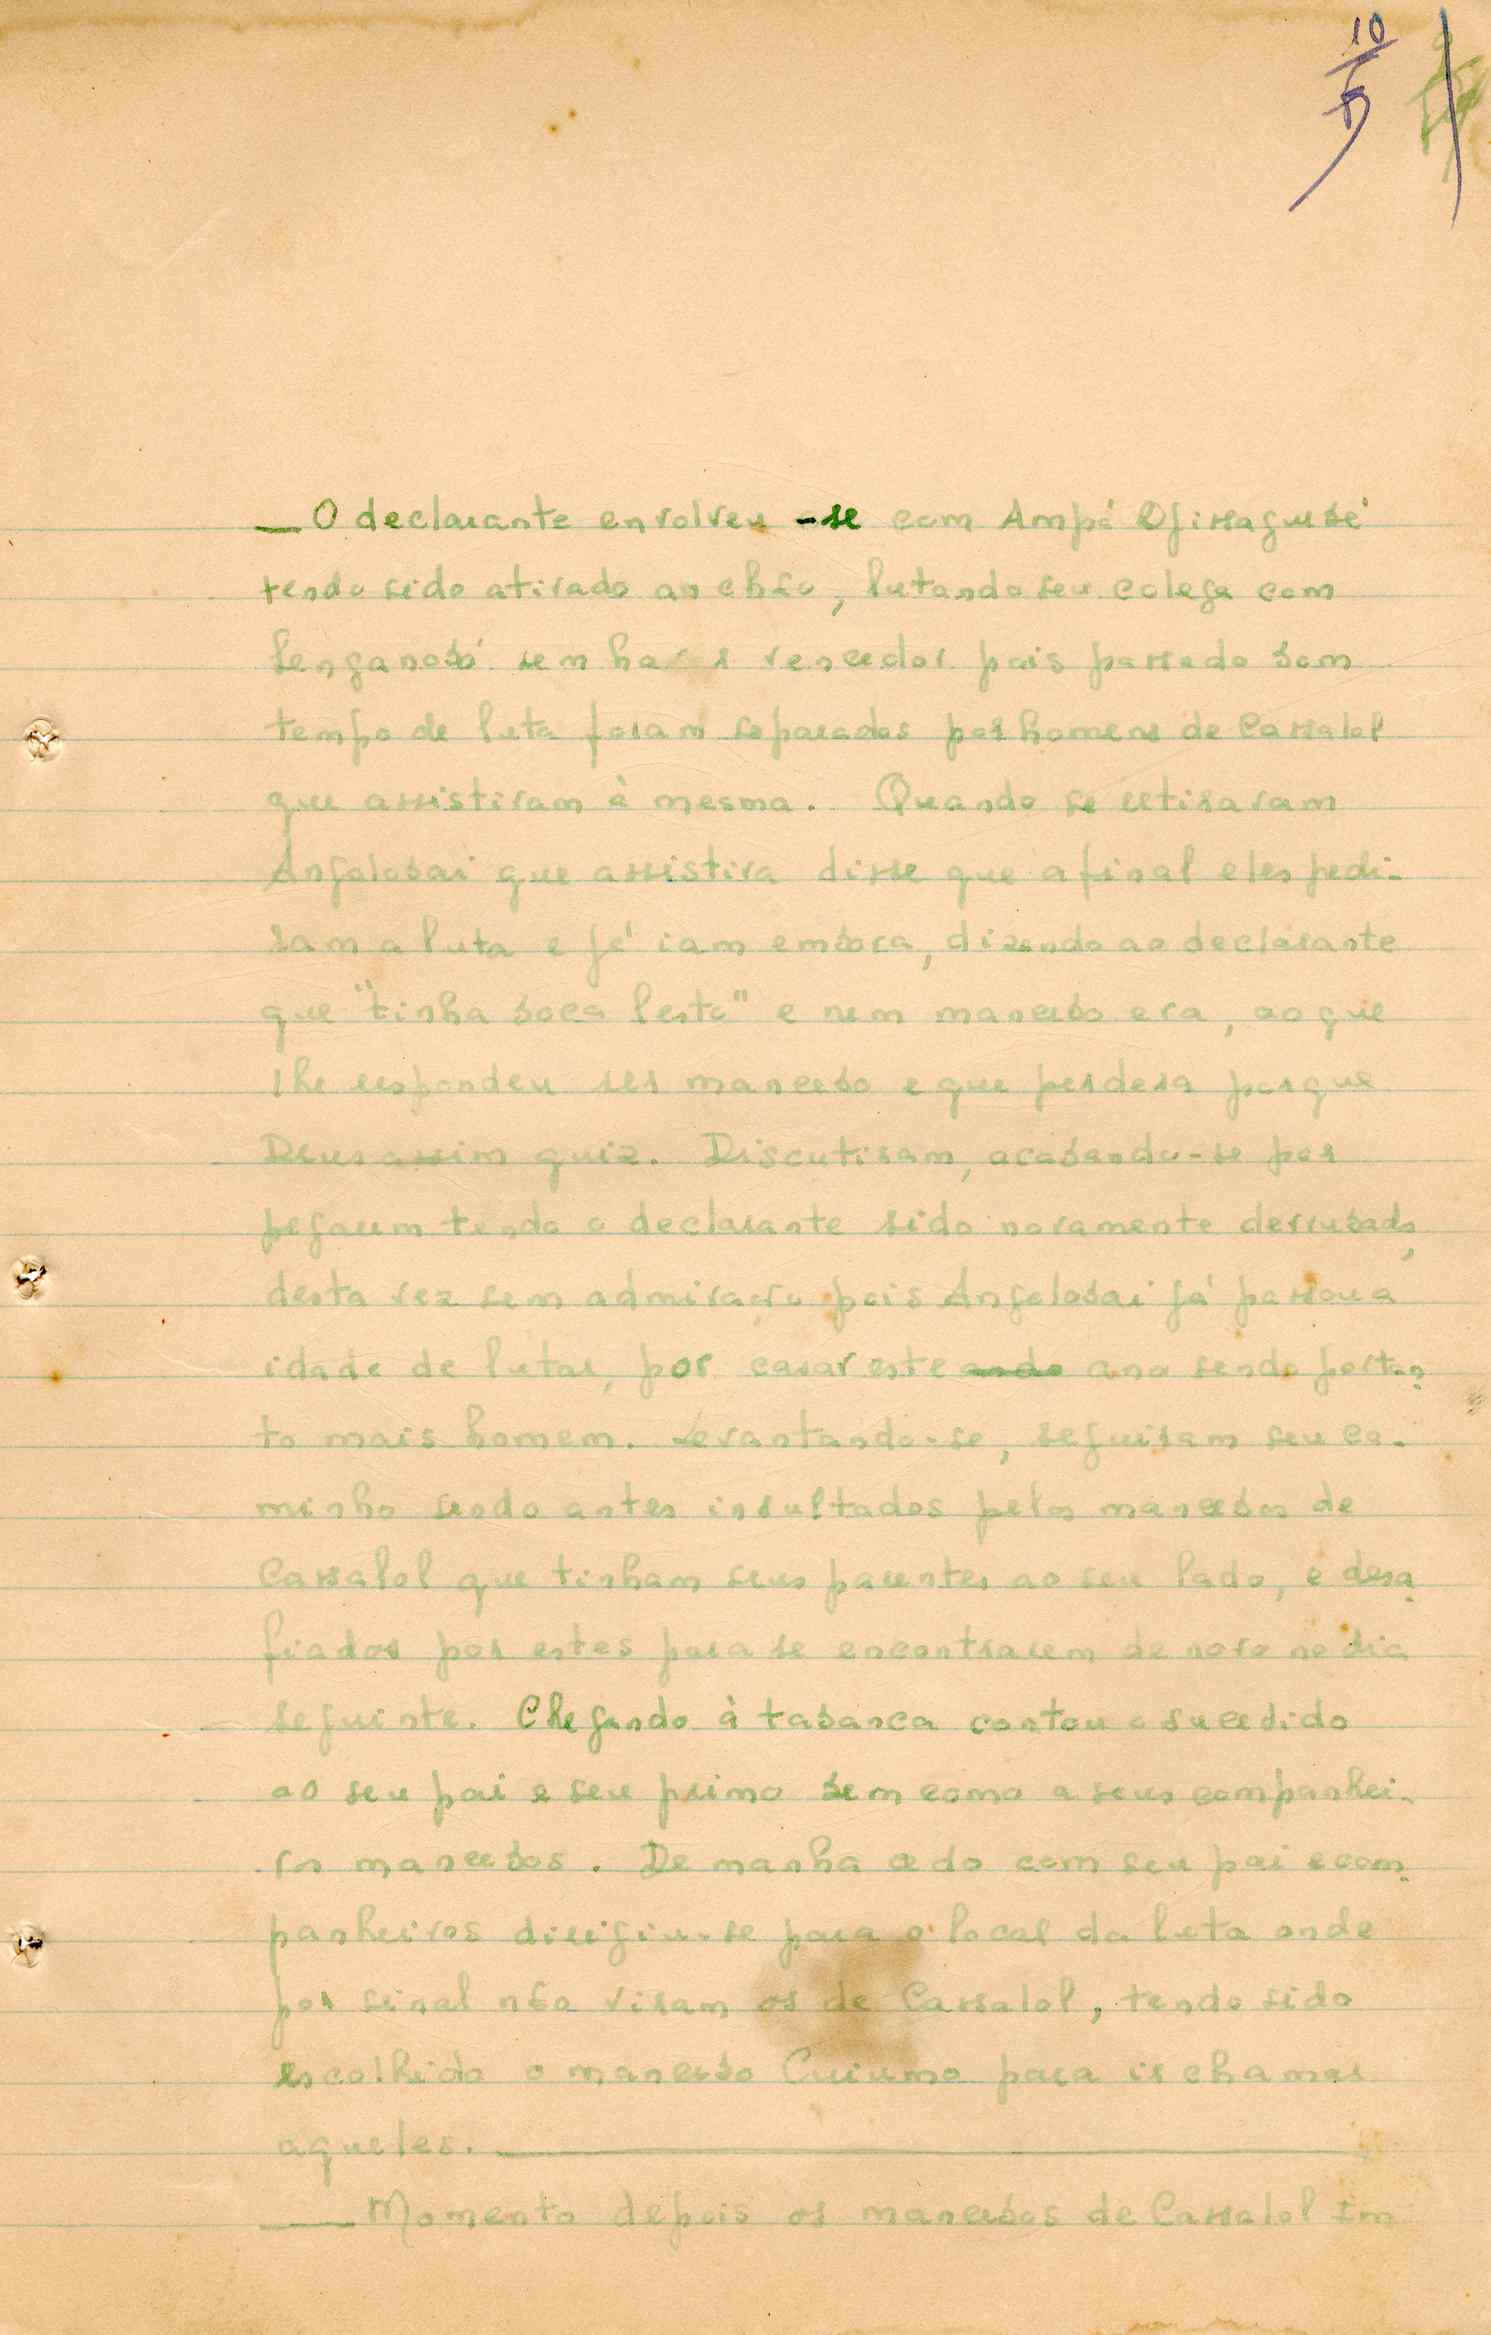 10
— O declarante envolveu-se com Ampá Djissaguibé
tendo sido atirado ao chão, lutando seu colega com
sem haver vencedor pois passado bom
tempo de luta foram separados por homens de Cassalol
que assistiram à mesma. Quando se retiraram
Angolobai que assistira disse que afinal eles pedi-
ram a luta e já iam embora, dizendo ao declarante
que "tinha boca lesto" e nem mancebo era, ao que
lhe respondeu ser mancebo e que perdera porque
Deus assim quiz. Discutiram, acabando-se por
pegarem tendo o declarante sido novamente derrubado,
desta vez sem admiração pois Angolobai já passou a
idade de lutar, por casar este ano sendo portan-
to mais homem. Levantando-se, seguiram seu ca-
minho sendo antes insultados pelos mancebos de
Cassalol que tinham seus parentes ao seu lado, e desa-
fiados por estes para se encontrarem de novo no dia
seguinte. Chegando à tabanca contou o sucedido
ao seu pai e seu primo bem como a seus companhei-
ros mancebos. De manhã cedo com seu pai e com-
panheiros dirigiu-se para o local da luta onde
por sinal não viram os de Cassalol, tendo sido
escolhido o mancebo Cuiumo para ir chamar
aqueles. —
— Momento depois os mancebos de Cassalol em